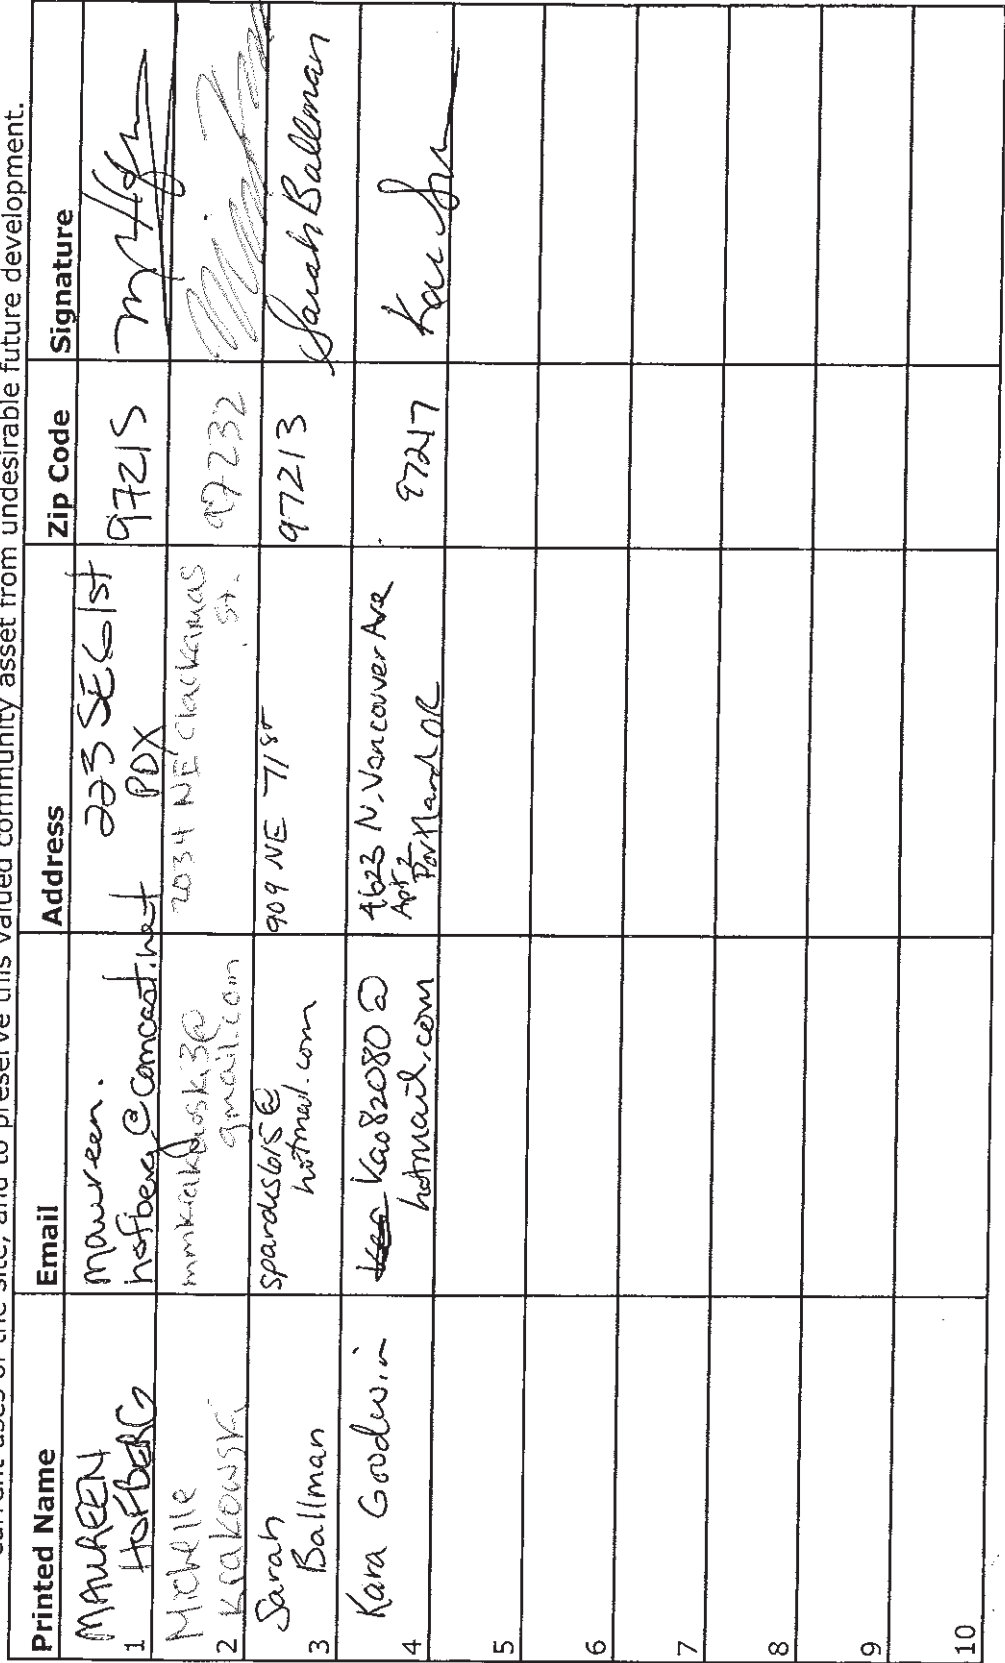 current uses of the site, and to preserve this valued community asset from undesirable future development.
Printed Name Email Address Zip Code Signature
1 MAUREEN HOFBERG maureen. hofberg@comcast.net 223 SE 61st PDX 97215
2 Michelle Krakowski mmkrakowski3@ gmail.com 2034 NE Clackamas St. 97232
3 Sarah Ballman spardis615@ hotmail.com 909 NE 71st 97213 Sarah Ballman
4 Kara Goodwin Kao82080@ hotmail.com 4623 N. Vancouver Ave Apt 2 Portland OR 97217
5
6
7
8
9
10